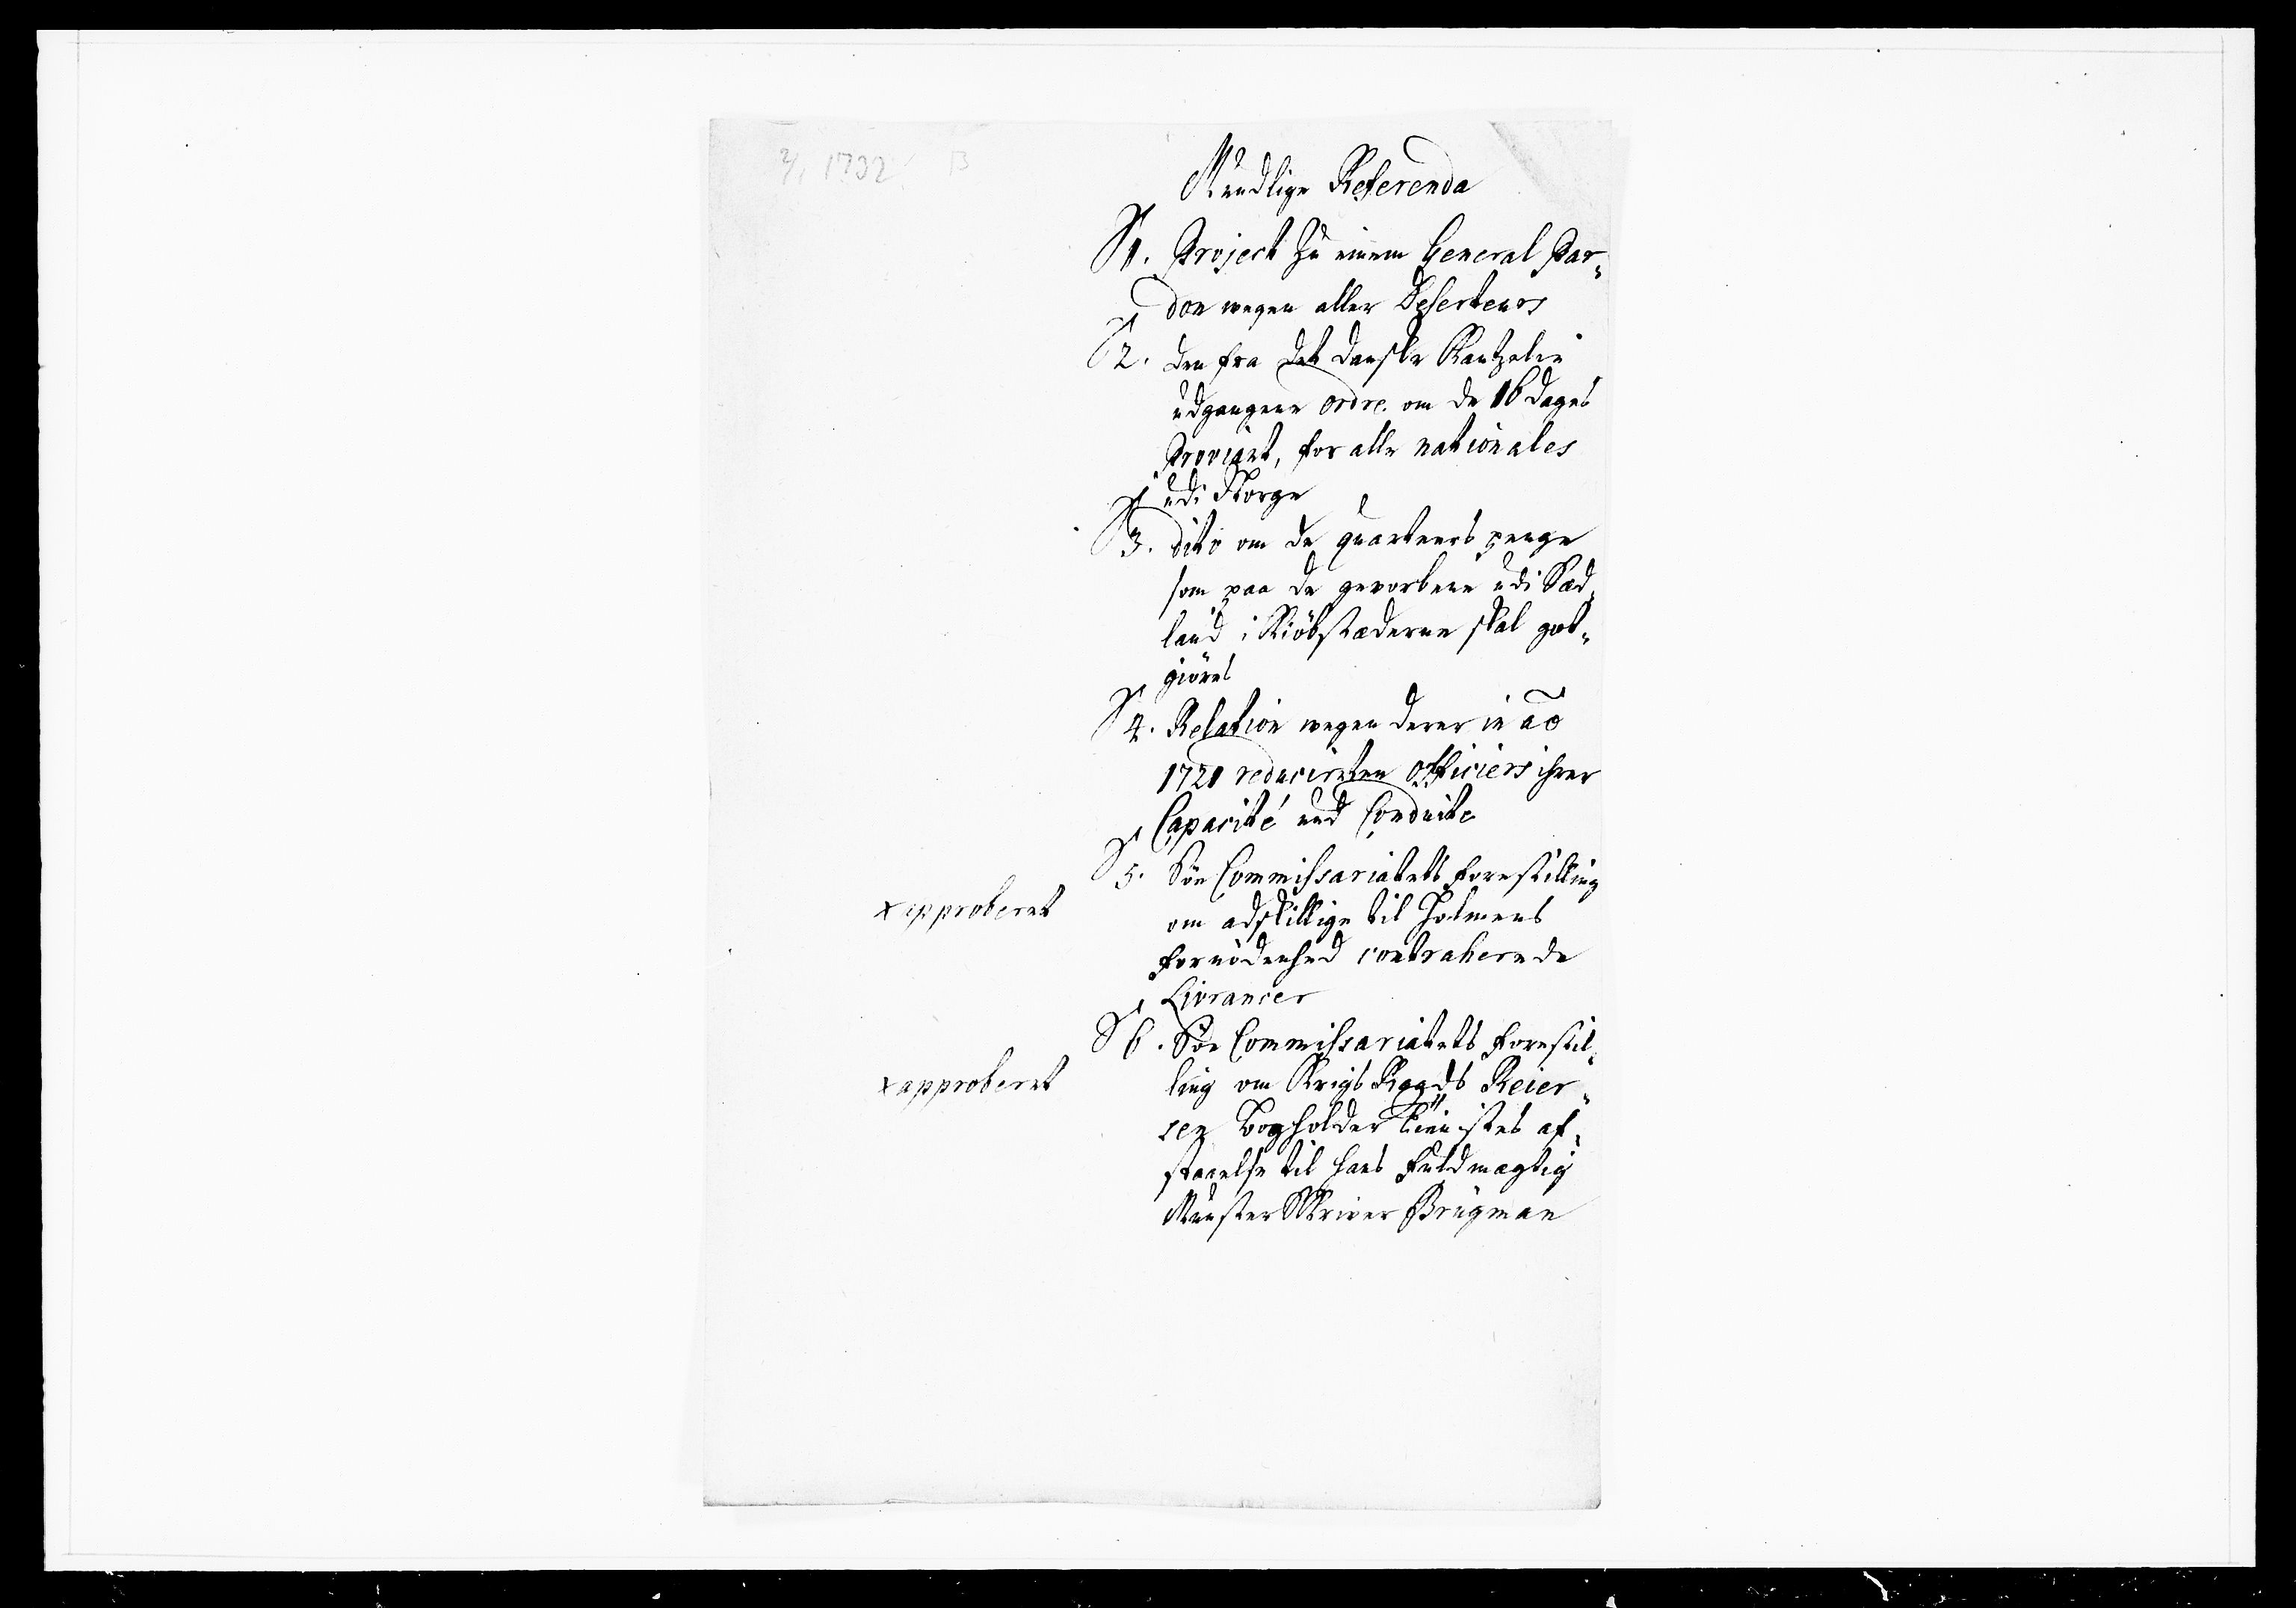 2/1 1732. B
Mundlige Referenda
1. Project zu einem General Par„
don wegen aller Deserteurs
2. den fra det danske Kantzelie
udgangene ordre om de 16 dages
Proviant, for alle nationales
udi Norge
3. dito om de quarteers penge
som paa de gevorbene udi Sæd„
land i Kiöbstæderne skal got„
giöres
4. Relation wegen derer in ao
1721 reducireten officiers ihrer
Capacité und Conduite
5. Söe Commissariatets forestilling
x approberet
om adskillige til Holmens
fornödenhed contraherede
Livrancer
6. Söe Commissariatets forestil„
x approberet
ling om Krigs Raads Reier„
sen Bogholder Tienistes af„
staaelse til hans fuldmægtig
Munster Skriver Brügman